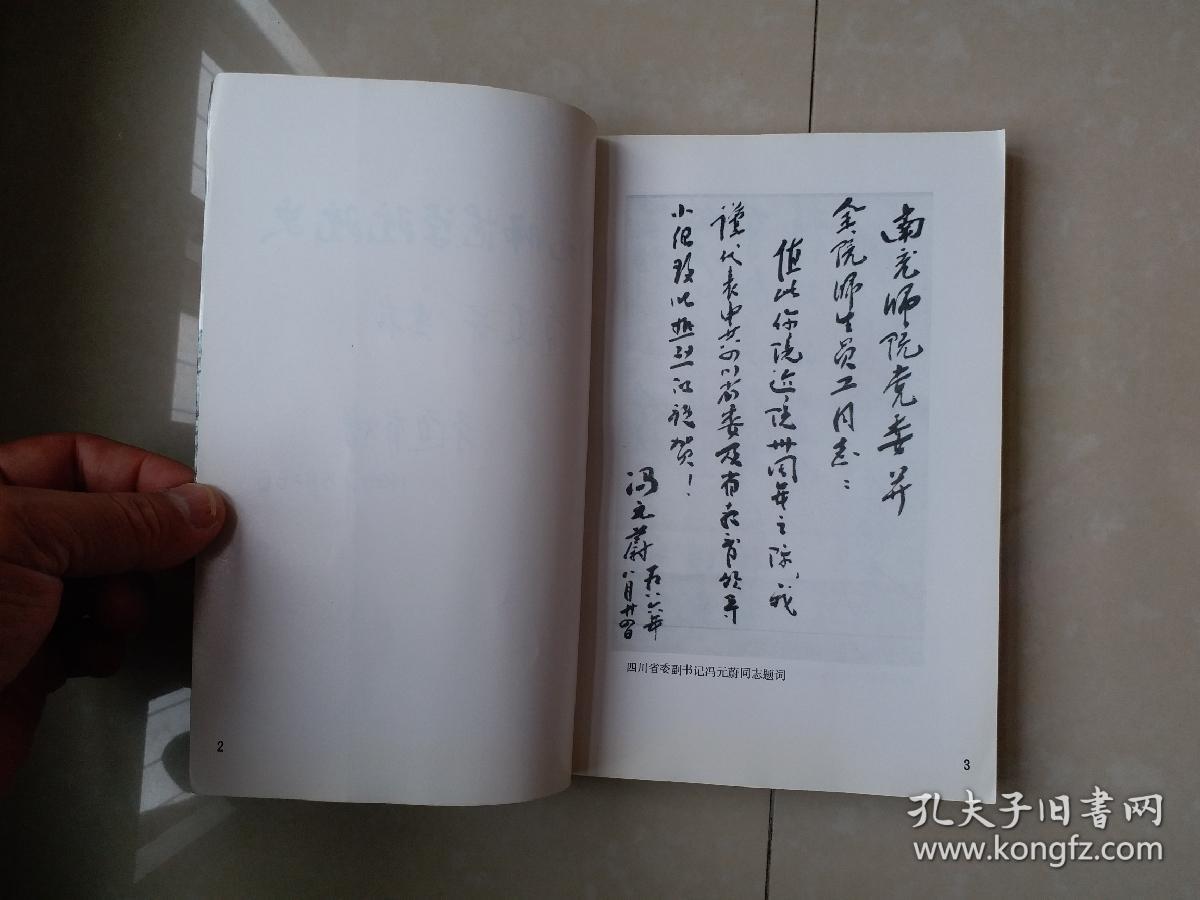 南充师院党委并
全院师生员工同志：
值此你院迎院卅周年之际，我
谨代表中共四川省委及省教育领导
小组致以热烈的祝贺！
冯元蔚
一九八六年
八月廿四日
四川省委副书记冯元蔚同志题词
2
3
孔夫子旧书网
www.kongfz.com